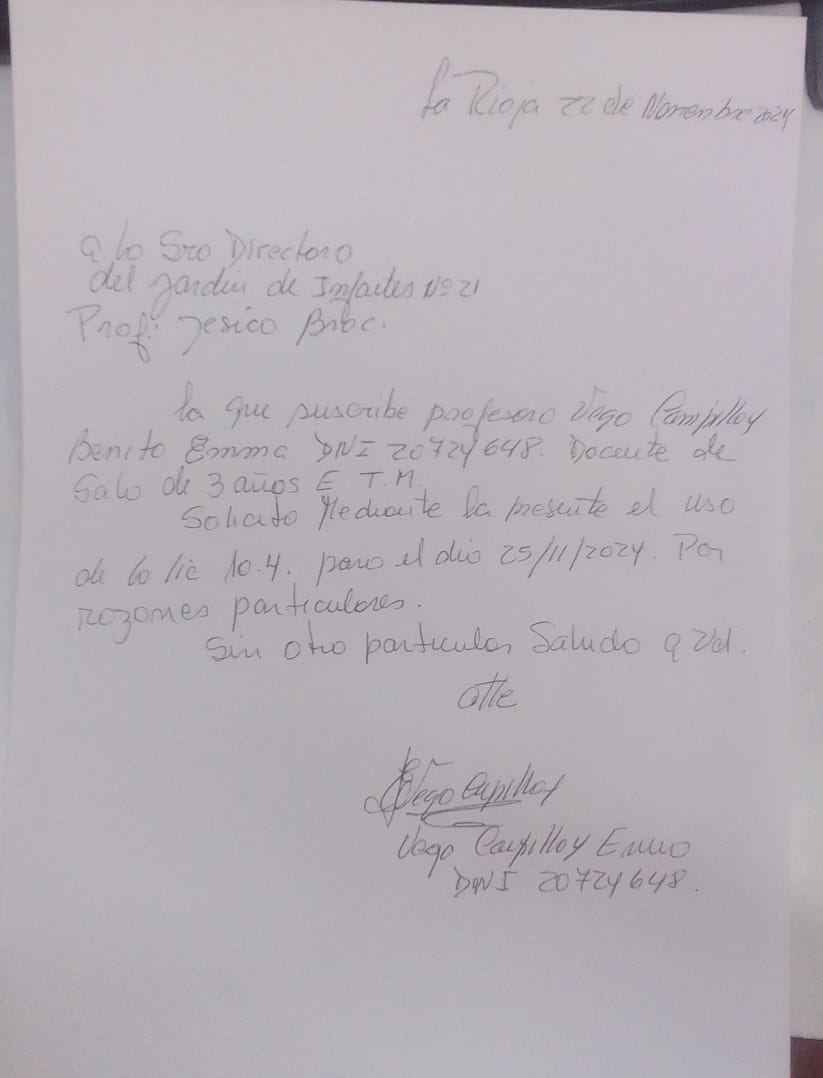 La Rioja 22 de Noviembre 2024
a la Sra Directora
del Jardin de Infantes Nº 21
Prof: Jesica
La que suscribe profesora Vega Campilloy
Benita Emma DNI 20724648. Docente de
Sala de 3 años E T.M.
Solicito Mediante la presente el uso
de la lic 10.4. para el dia 25/11/2024. Por
razones particulares.
Sin otro particular Saludo a Ud.
Atte
Vega Campilloy
Vega Campilloy Emma
DNI 20724648.